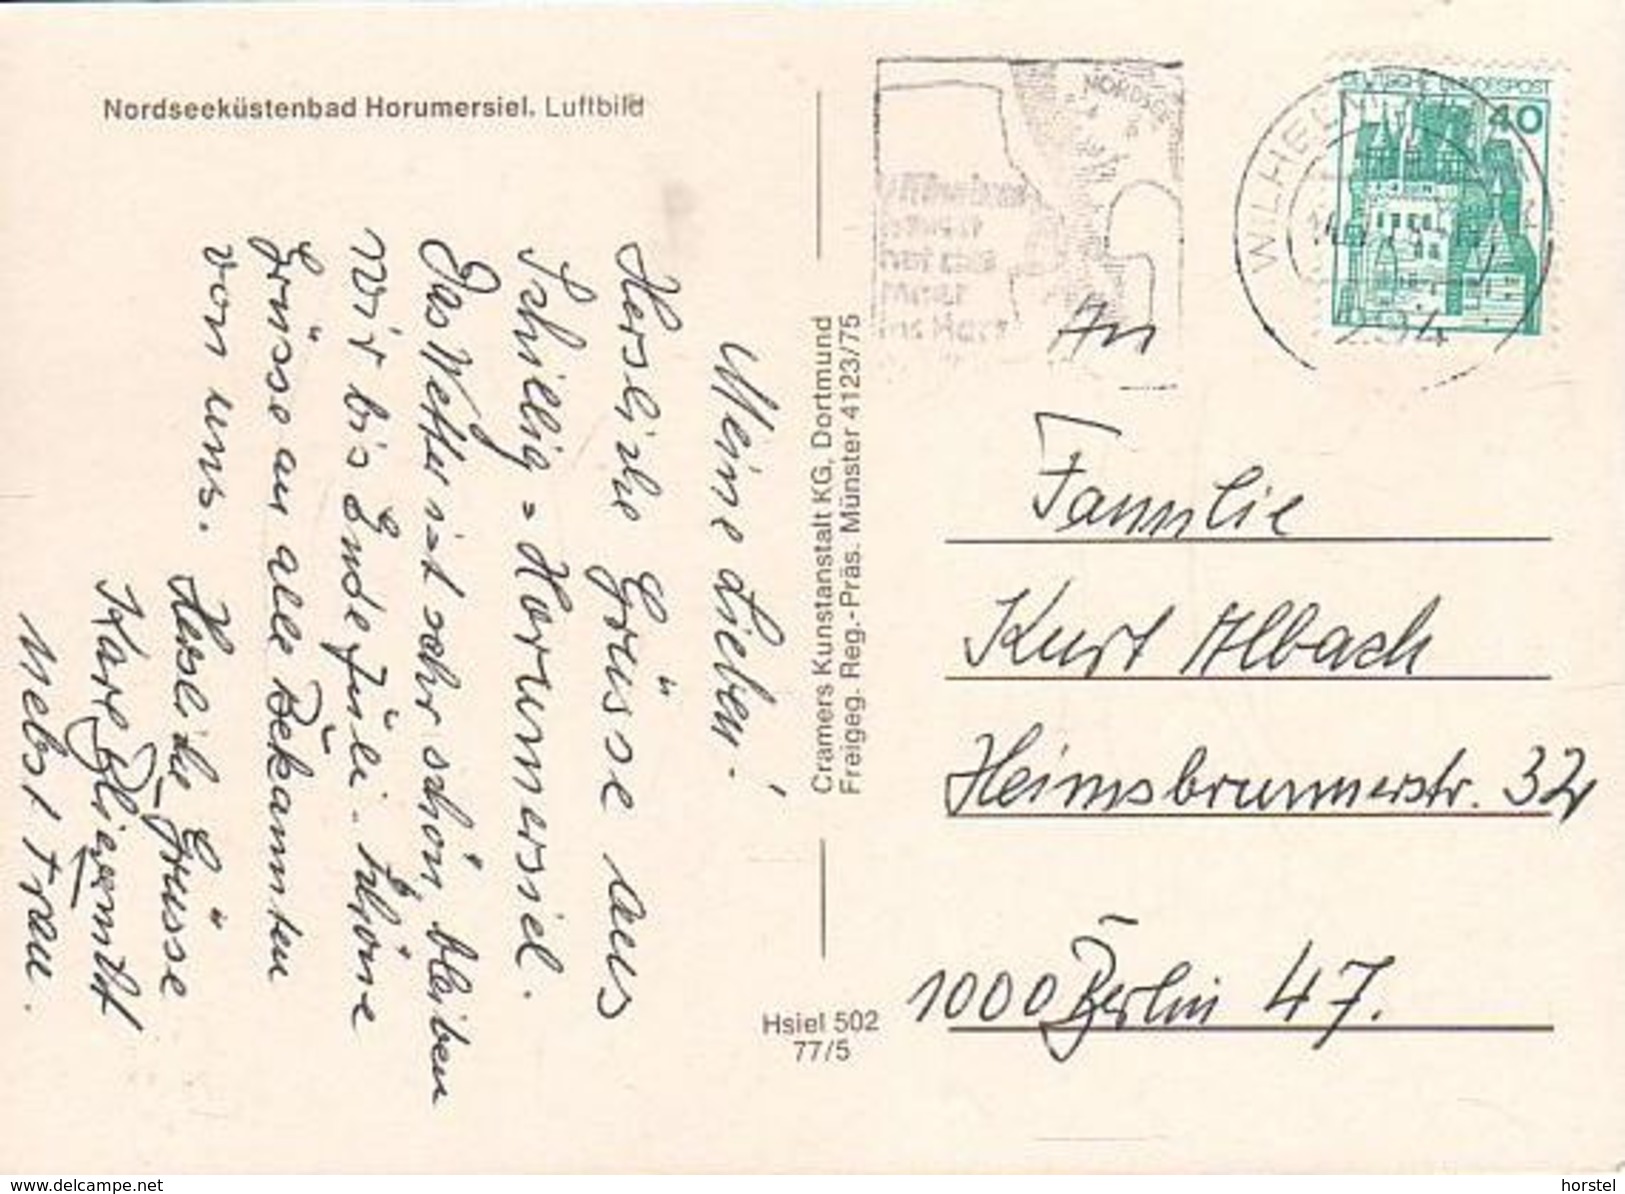 Nordseeküstenbad Horumersiel. Luftbild
Meine Lieben!
Herzliche Grüsse aus
Schillig = Horumersiel.
Das Wetter ist sehr schön, bleiben
wir bis Ende Juli. Schöne
Grüsse an alle Bekannten
von uns.
Herzliche Grüsse
nebst Frau.
Cramers Kunstanstalt KG, Dortmund
Freigeg. Reg.-Präs. Münster 4123/75
Hsiel 502
77/5
NORDSEE
hat das
Meer
ins Herz
DEUTSCHE BUNDESPOST
40
WILHELM
294
An
Familie
Kurt Albach
Heimsbrunnerstr. 32
1000 Berlin 47.
www.delcampe.net
horstel